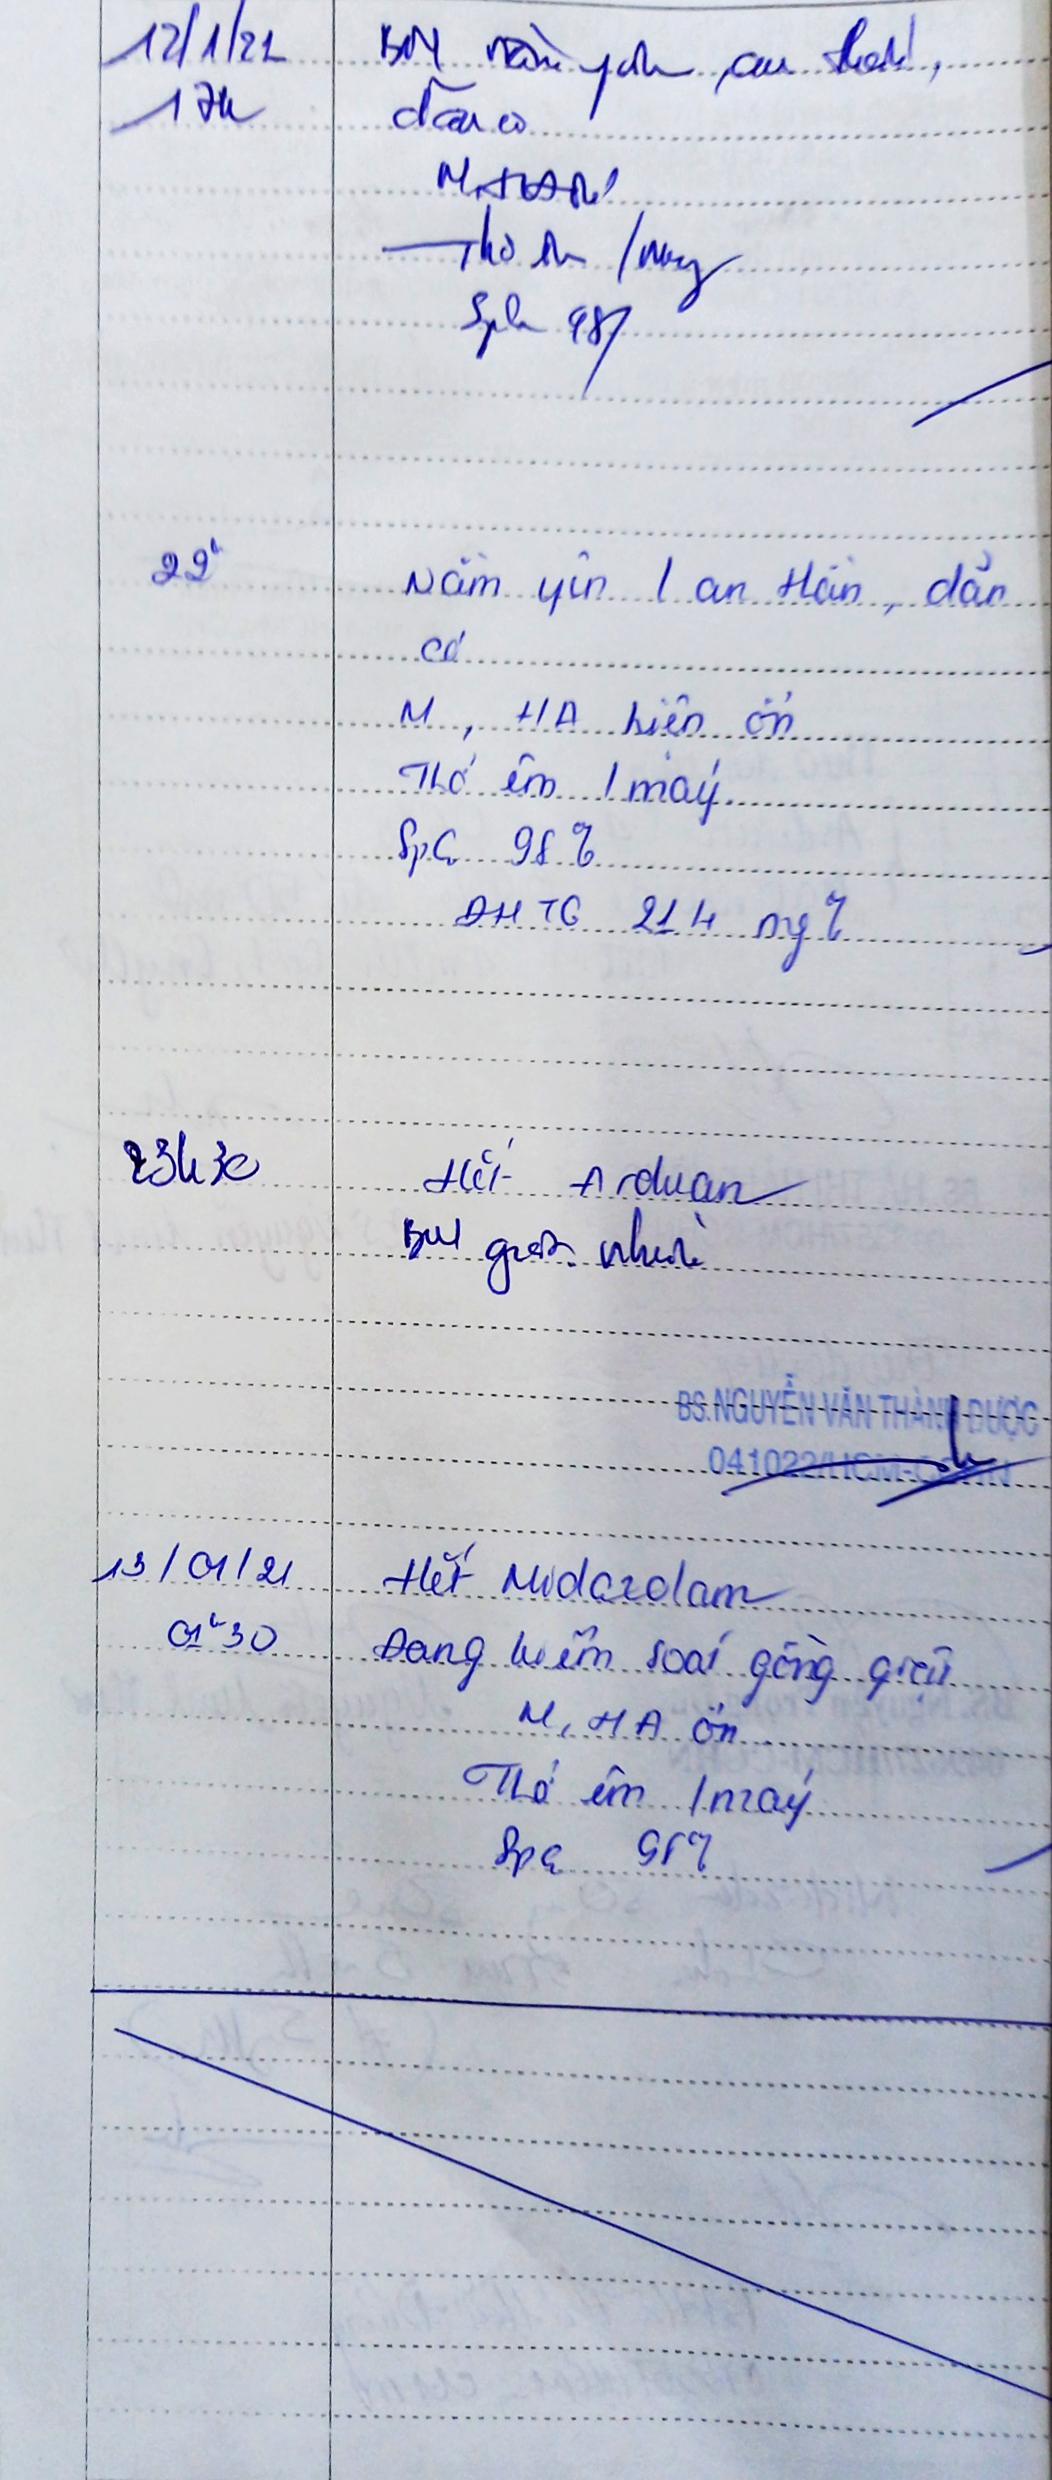 12/1/21
BN nằm yên, an thần,
17h
dãn cơ
M, HA ổn
Thở êm /máy
SpO2 98%
22h
Nằm yên / an thần, dãn
cơ
M, HA hiện ổn
Thở êm / máy
SpO2 98%
ĐHTC 214 mg%
23h30
Hết Arduan
BN gồng nhiều
BS.NGUYỄN VĂN THÀNH ĐƯỢC
041022/HCM-CCHN
13/01/21
Hết Midazolam
01h30
Đang kiểm soát gồng giật
M, HA ổn
Thở êm / máy
SpO2 98%